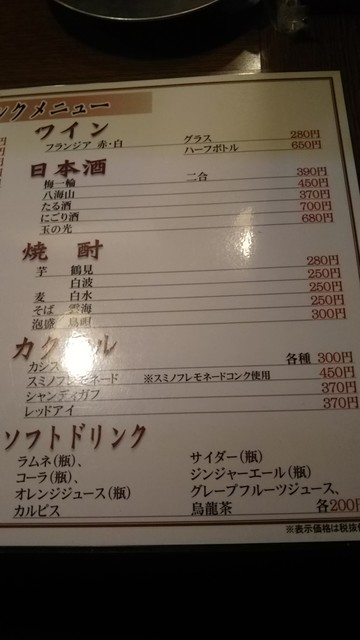 ンクメニュー
ワイン
フランジア 赤・白 グラス 280円
ハーフボトル 650円
日本酒
梅一輪 二合 390円
八海山 450円
たる酒 370円
にごり酒 700円
玉の光 680円
焼酎
芋 鶴見 280円
白波 250円
麦 白水 250円
そば 雲海 250円
泡盛 300円
カクテル
カシス 各種 300円
スミノフレモネード ※スミノフレモネードコンク使用 450円
シャンディガフ 370円
レッドアイ 370円
ソフトドリンク
ラムネ(瓶)、 サイダー(瓶)
コーラ(瓶)、 ジンジャーエール(瓶)
オレンジジュース(瓶) グレープフルーツジュース、
カルピス 烏龍茶 各200円
※表示価格は税抜